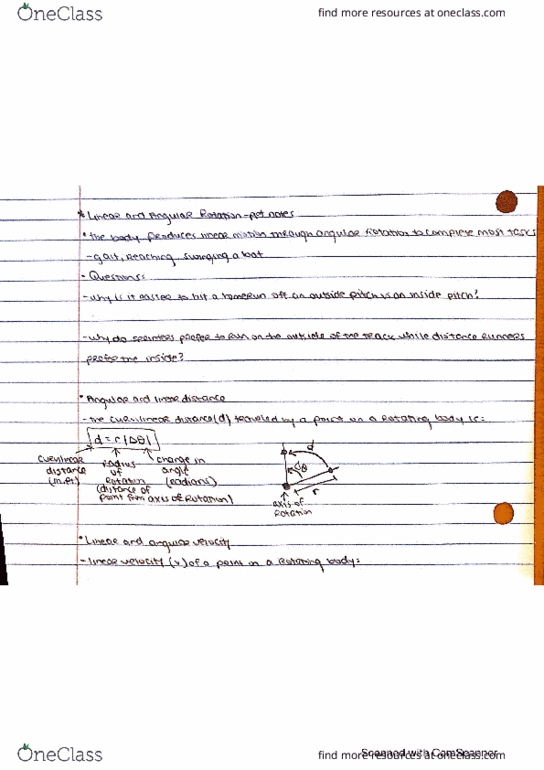 OneClass
find more resources at oneclass.com
* Linear and Angular Rotation-ppt notes
• the body produces linear motion through angular rotation to complete most tasks
- gait, reaching, swinging a bat
- Questions:
- why is it easier to hit a homerun off an outside pitch vs an inside pitch?
- why do sprinters prefer to run on the outside of the track while distance runners
prefer the inside?
* Angular and linear distance
- the curvilinear distance (d) traveled by a point on a rotating body is:
d = r |Δθ|
curvilinear
distance
(m, ft)
radius
of
rotation
(distance of
point from axis of rotation)
change in
angle
(radians)
d
θ
r
axis of
rotation
• Linear and angular velocity
- linear velocity (v) of a point on a rotating body:
OneClass
find more resources at oneclass.com
Scanned with CamScanner